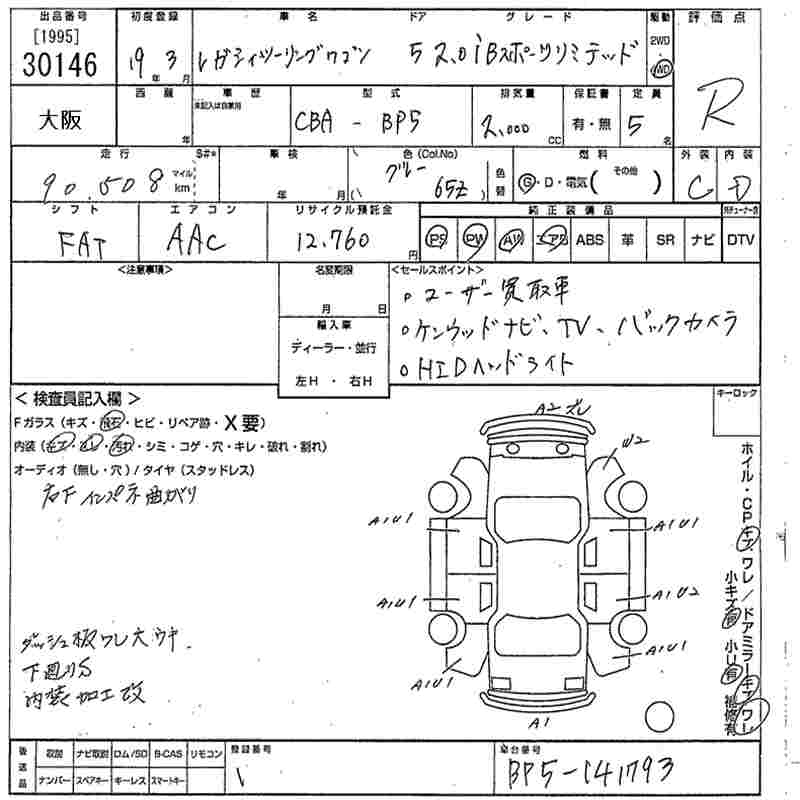 出品番号 初度登録 車名 ドア グレード 駆動 評価点
[1995]
30146 19年 3月 レガシィツーリングワゴン 5 2.0iBスポーツリミテッド 2WD・4WD R
大阪 西暦 年 車歴 未記入は自家用 型式 CBA - BP5 排気量 2,000cc 保証書 有・無 定員 5名
走行 90,508 マイル km S#* 車検 年 月 色(Col.No) グレー ( 65Z ) 色替 燃料 G・D・電気( その他 ) 外装 C 内装 D
シフト FAT エアコン AAC リサイクル預託金 12,760円 純正装備品 PS PW AW エアB ABS 革 SR ナビ DTV
<注意事項> 名変期限 月 日 <セールスポイント>
輸入車
ディーラー・並行
左H・右H
。ユーザー買取車
。ケンウッドナビ、TV、バックカメラ
。HIDヘッドライト
<検査員記入欄> キーロック
Fガラス(キズ・飛石・ヒビ・リペア跡・X要)
内装(キズ・スレ・汚れ・シミ・コゲ・穴・キレ・破れ・割れ)
オーディオ(無し・穴)/タイヤ(スタッドレス)
右Fインパネ曲がり
ダッシュ板ワレ大ウキ.
下廻りS
内装加工改
A2ズレ
W2
A1U1
A1U1
A1U1
A1U2
A1U1
A1U1
A1
ホイル・CPキズ ワレ/ドアミラーキズ ワレ
小キズ有 小U有 補修有
後送品 取説 ナビ取説 ロム/SD B-CAS リモコン 登録番号 車台番号
ナンバー スペアキー キーレス スマートキー BP5-141793